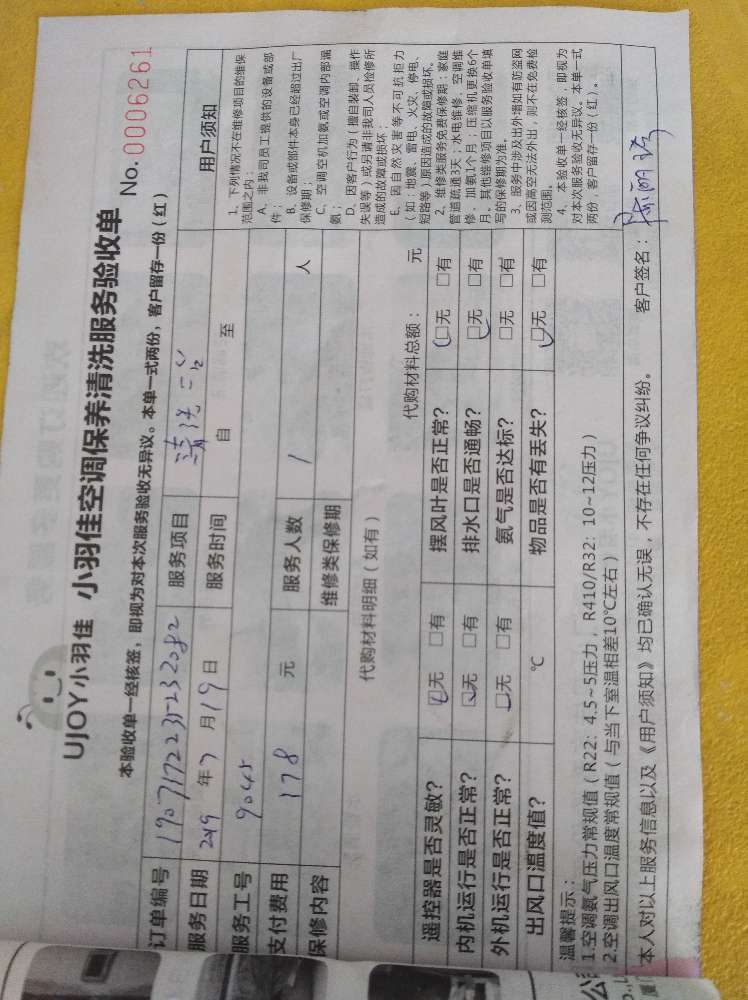 UJOY小羽佳 小羽佳空调保养清洗服务验收单 No. 0006261
本验收单一经核签，即视为对本次服务验收无异议。本单一式两份，客户留存一份（红）
订单编号 服务项目 清洗
服务日期 2019 年 7 月 19 日 服务时间 自 至
服务工号 9045
支付费用 178 元 服务人数 1 人
保修内容 维修类保修期
代购材料明细（如有） 代购材料总额： 元
遥控器是否灵敏？ □无 □有 摆风叶是否正常？ □无 □有
内机运行是否正常？ □无 □有 排水口是否通畅？ □无 □有
外机运行是否正常？ □无 □有 氨气是否达标？ □无 □有
出风口温度值？ ℃ 物品是否有丢失？ □无 □有
温馨提示：
1.空调氨气压力常规值（R22：4.5~5压力，R410/R32：10~12压力）
2.空调出风口温度常规值（与当下室温相差10℃左右）
本人对以上服务信息以及《用户须知》均已确认无误，不存在任何争议纠纷。 客户签名：
用户须知
1、下列情况不在维修项目的维保
范围之内：
A、非我司员工提供的设备或部
件；
B、设备或部件本身已经超过出厂
保修期；
C、空调空机加氨或空调内部漏
氨；
D、因客户行为（擅自装卸、操作
失误等）或另请非我司人员检修所
造成的故障或损坏；
E、因自然灾害等不可抗拒力
（如：地震、雷电、火灾、停电、
短路等）原因造成的故障或损坏。
2、维修类服务免费保修期：家庭
管道疏通3天；水电维修、空调维
修、加氨1个月；压缩机更换6个
月。其他维修项目以服务验收单填
写的保修期为准。
3、服务中涉及出外墙如有防盗网
或因高空无法外出，则不在免费检
测范围。
4、本验收单一经核签，即视为
对本次服务验收无异议。本单一式
两份，客户留存一份（红）。